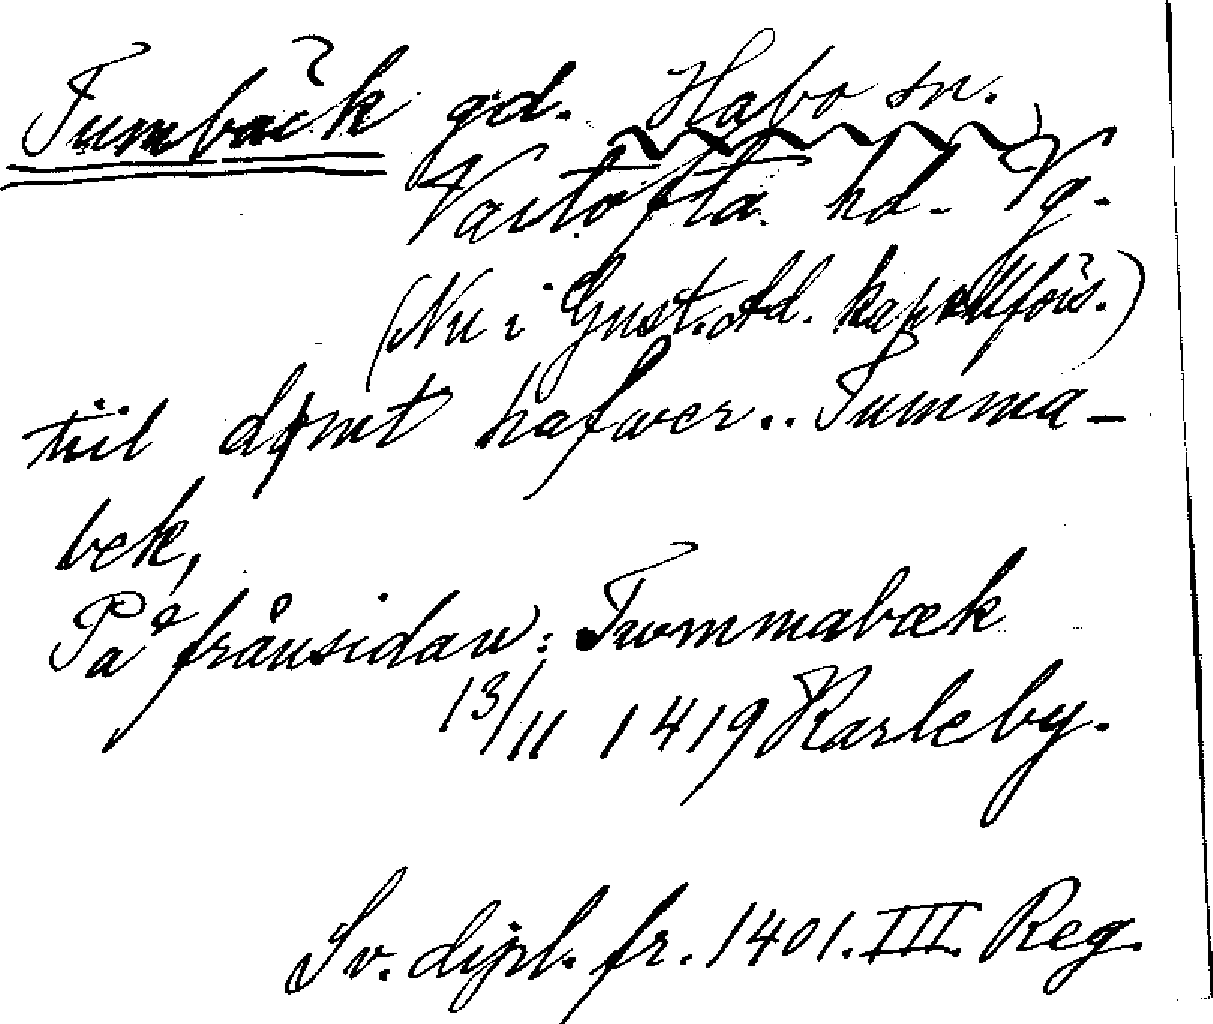 Tumbäck gd. Habo sn.
Vartofta hd. Vg.
(Nu i Gust. Ad. kapellförs.)
tiil dømt hafwer.. Tumma-
bek,
På frånsidan: Twmmabæk
13/11 1419 Karleby.
Sv. dipl. fr. 1401. III. Reg.